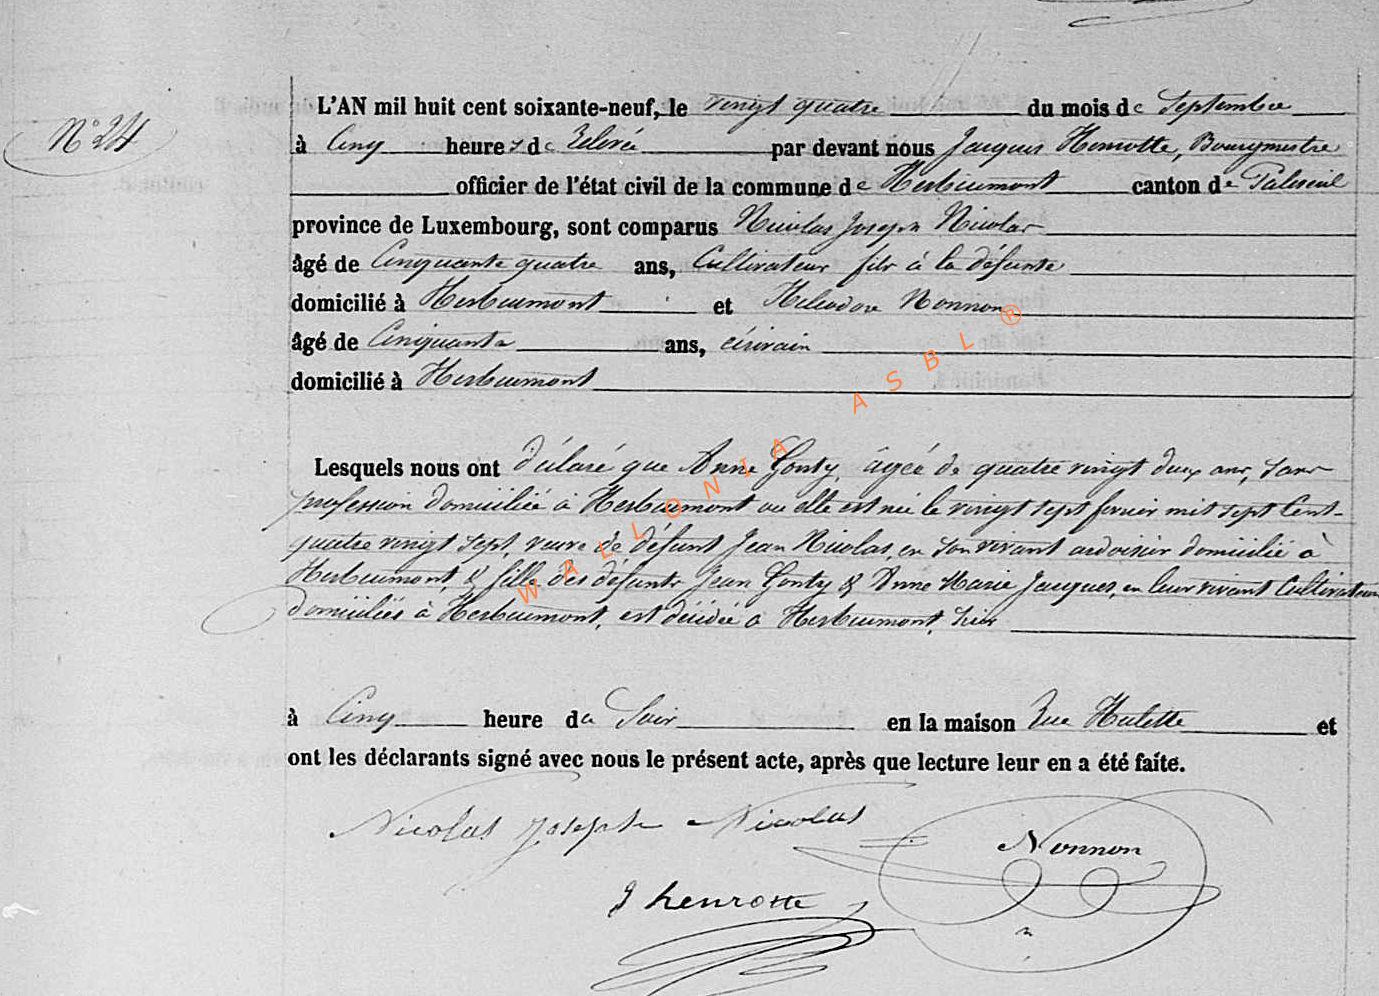 N° 24
L'AN mil huit cent soixante-neuf, le vingt quatre du mois de Septembre
à Cinq heures de Relevée par devant nous Jacques Henrotte, Bourgmestre
officier de l'état civil de la commune de Herbeumont canton de Paliseul
province de Luxembourg, sont comparus Nicolas Joseph Nicolas
âgé de Cinquante quatre ans, Cultivateur fils à la défunte
domicilié à Herbeumont et Héliodore Nonnon
âgé de Cinquante ans, écrivain
domicilié à Herbeumont
Lesquels nous ont déclaré que Anne Gonty, âgée de quatre vingt deux ans, sans
profession domiciliée à Herbeumont où elle est née le vingt sept février mil sept Cent
quatre vingt sept, veuve de défunt Jean Nicolas, en son vivant ardoisier domicilié à
Herbeumont, & fille des défunts Jean Gonty & Anne Marie Jacques, en leur vivant Cultivateurs
domiciliés à Herbeumont, est décédée à Herbeumont, hier
à Cinq heure du Soir en la maison Rue Hulette et
ont les déclarants signé avec nous le présent acte, après que lecture leur en a été faite.
Nicolas Joseph Nicolas
Nonnon
J henrotte
WALLONIA ASBL ®